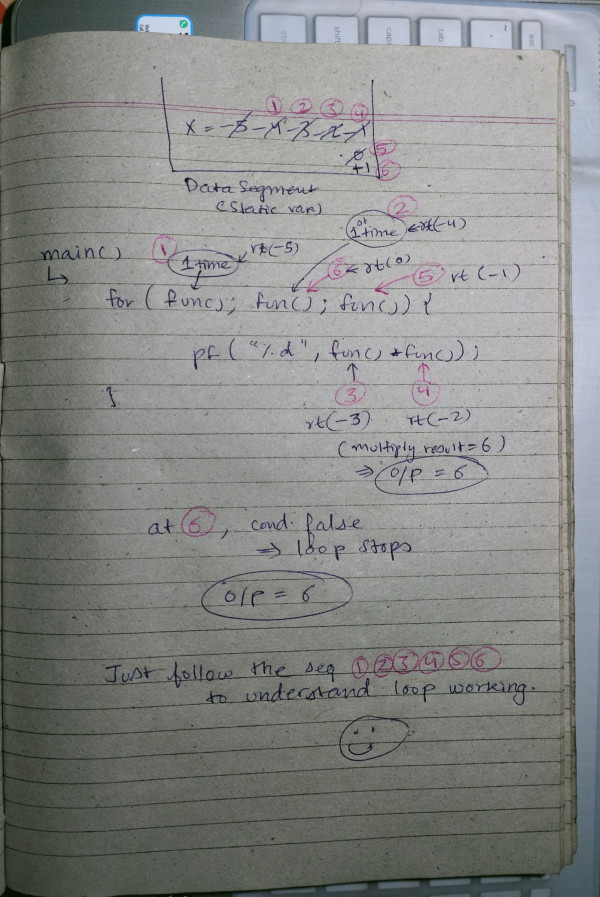 ① ② ③ ④
x = -5 -4 -3 -2 -1
0 ⑤
+1 ⑥
Data Segment
(Static var)
②
1st time ← rt(-4)
main() ① 1 time ← rt(-5)
⑥ ← rt(0)
⑤ rt(-1)
for ( func(); func(); func()) {
pf ( "%d", func() * func());
}
③ ④
rt(-3) rt(-2)
(multiply result = 6)
⇒ o/p = 6
at ⑥, cond. false
⇒ loop stops
o/p = 6
Just follow the seq ①②③④⑤⑥
to understand loop working.